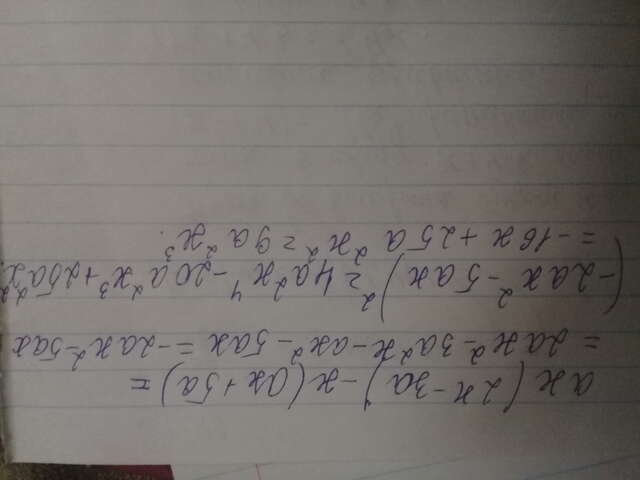 ax(2x-3a)-x(ax+5a)=
=2ax²-3a²x-ax²-5ax=-2ax²-5ax
(-2ax²-5ax)²=4a²x⁴-20a²x³+25a²x²
=-16x+25a²x²=9a²x³.